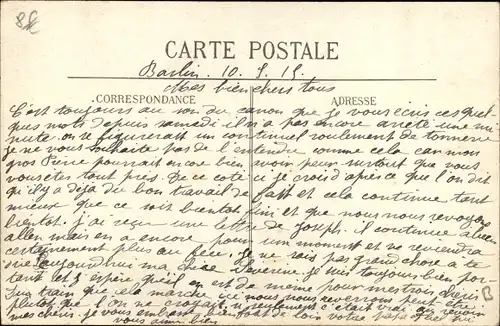 CARTE POSTALE
Barlin. 10. 5. 15.
Mes bien chers tous
CORRESPONDANCE
ADRESSE
C'est toujours au son du canon que je vous écris ces quel-
ques mots depuis samedi il n'a pas encore arrêté une mi-
nute. on se figurerait un continuel roulement de tonnerre
je ne vous souhaite pas de l'entendre comme cela car mon
gros Pierre pourrait encore bien avoir peur surtout que vous
vous êtes tout près. De ce côté ci je crois d'après ce que l'on dit
qu'il y a déjà du bon travail de fait et cela continue tant
mieux que ce soit bientôt fini et que nous nous revoyons
bientôt. j'ai reçu une lettre de Joseph. il continue à
aller mais en a encore pour un moment et ne reviendra
certainement plus au feu. Je ne sais pas grand chose à te
dire aujourd'hui ma chère je suis toujours bien por-
tant et j'espère qu'il en est de même pour mes trois chéris
Du train que cela marche nous nous reverrons peut être
plutôt que l'on ne croyait. c'était vrai. au revoir
mes chéris. je vous embrasse bien fort de loin votre papa qui
vous aime bien